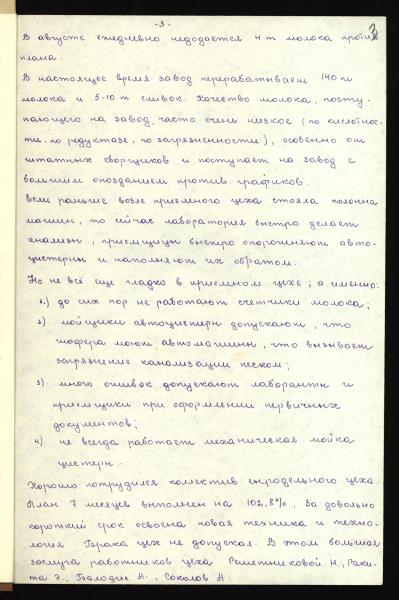 -3-
3
В августе ежедневно недодается 4 т молока против
плана.
В настоящее время завод перерабатывает 140 т
молока и 5-10 т сливок. Качество молока, посту-
пающего на завод, часто очень низкое (по кислотнос-
ти, по редуктазе, по загрязненности), особенно от
штатных сборщиков и поступает на завод с
большим опозданием против графиков.
Если раньше возле приемного цеха стояла колонна
машин, то сейчас лаборатория быстро делает
анализы, приемщицы быстро опорожняют авто-
цистерны и наполняют их обратом.
Но не всё еще гладко в приемном цехе; а именно:
1.) до сих пор не работают счетчики молока;
2). мойщики автоцистерн допускают, что
шофера моют автомашины, что вызывает
загрязнение канализации песком;
3). много ошибок допускают лаборанты и
приемщики при оформлении первичных
документов;
4). не всегда работает механическая мойка
цистерн.
Хорошо потрудился коллектив сыродельного цеха.
План 7 месяцев выполнен на 102,8%, За довольно
короткий срок освоена новая техника и техно-
логия Брака цех не допускал. В этом большая
заслуга работников цеха Решетниковой Н., Раки-
та Э., Балодис А., Соколов А.